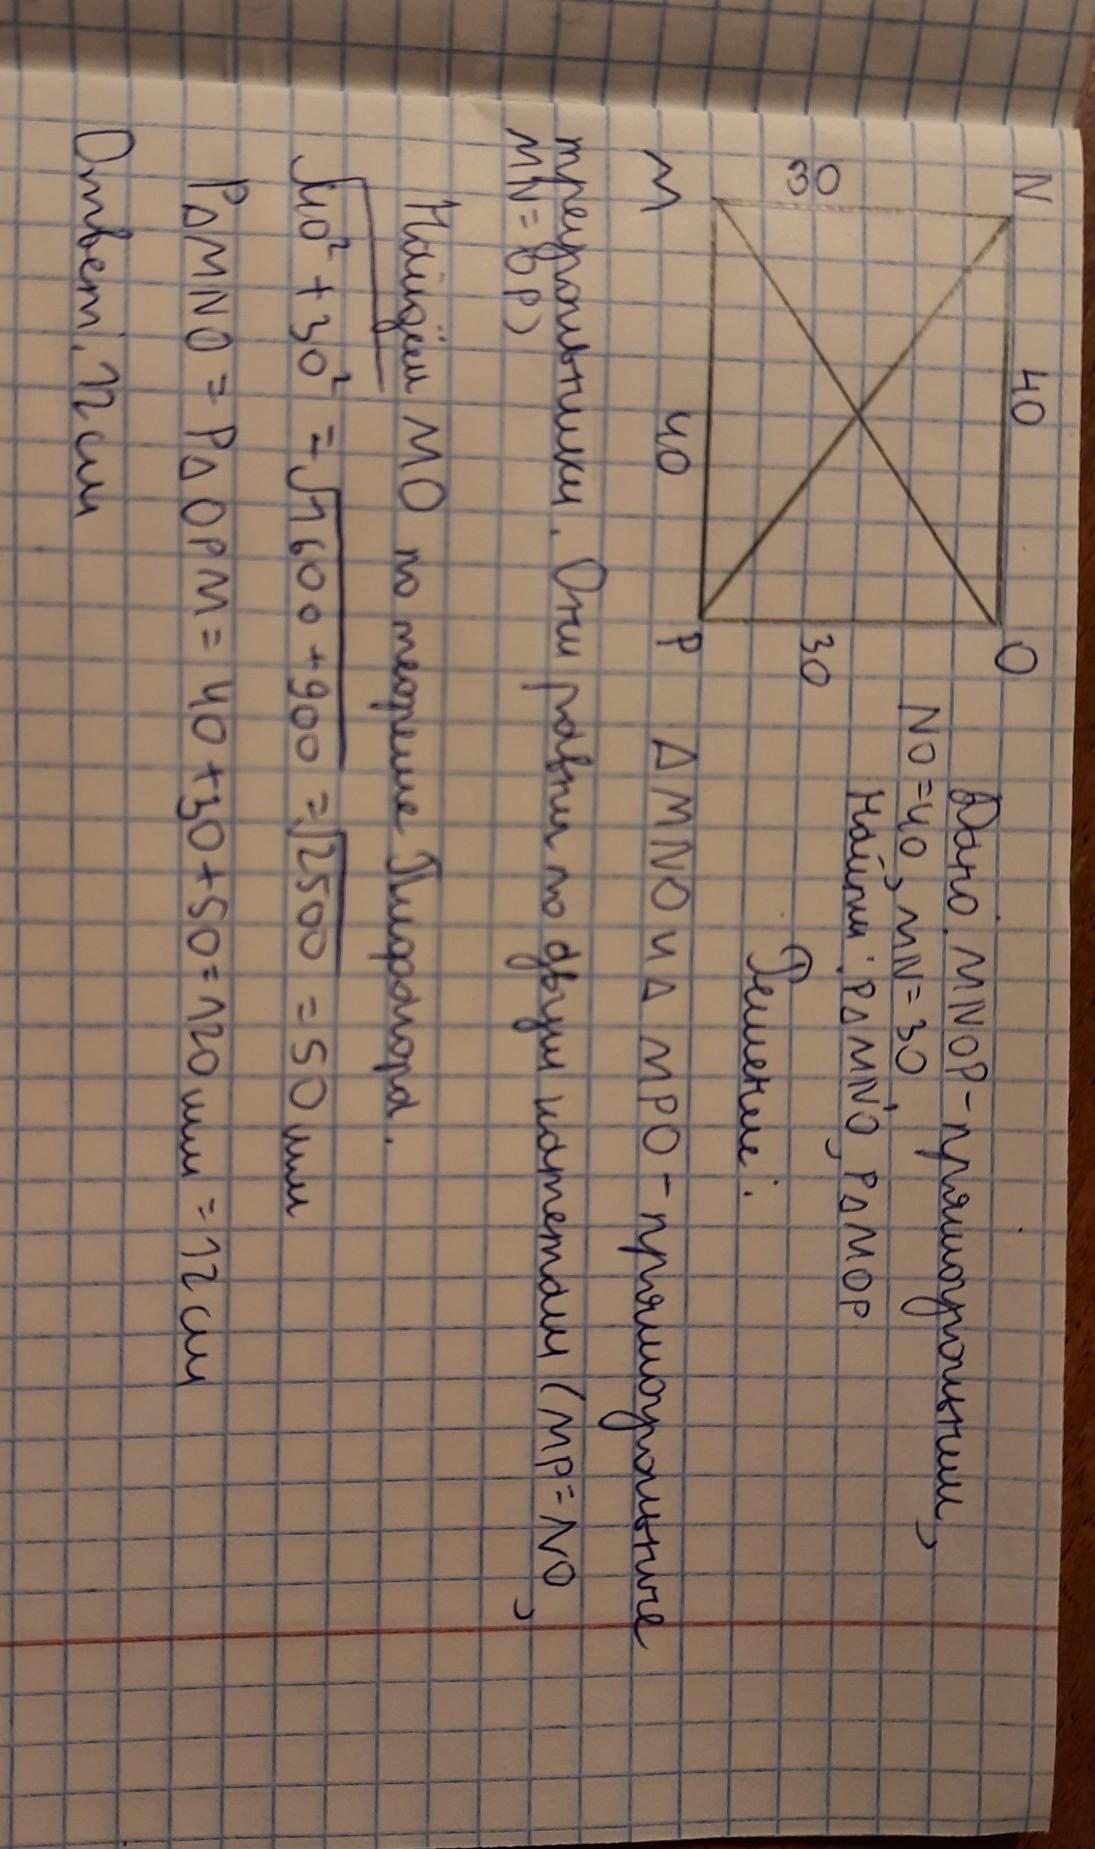 N 40 O
30
30
M 40 P
Дано: MNOP - прямоугольник,
NO = 40, MN = 30
Найти: P∆MNO, P∆MOP
Решение:
∆MNO и ∆MPO - прямоугольные
треугольники. Они равны по двум катетам (MP = NO,
MN = OP)
Найдём MO по теореме Пифагора.
√40² + 30² = √1600 + 900 = √2500 = 50 мм
P∆MNO = P∆OPM = 40 + 30 + 50 = 120 мм = 12 см
Ответ: 12 см